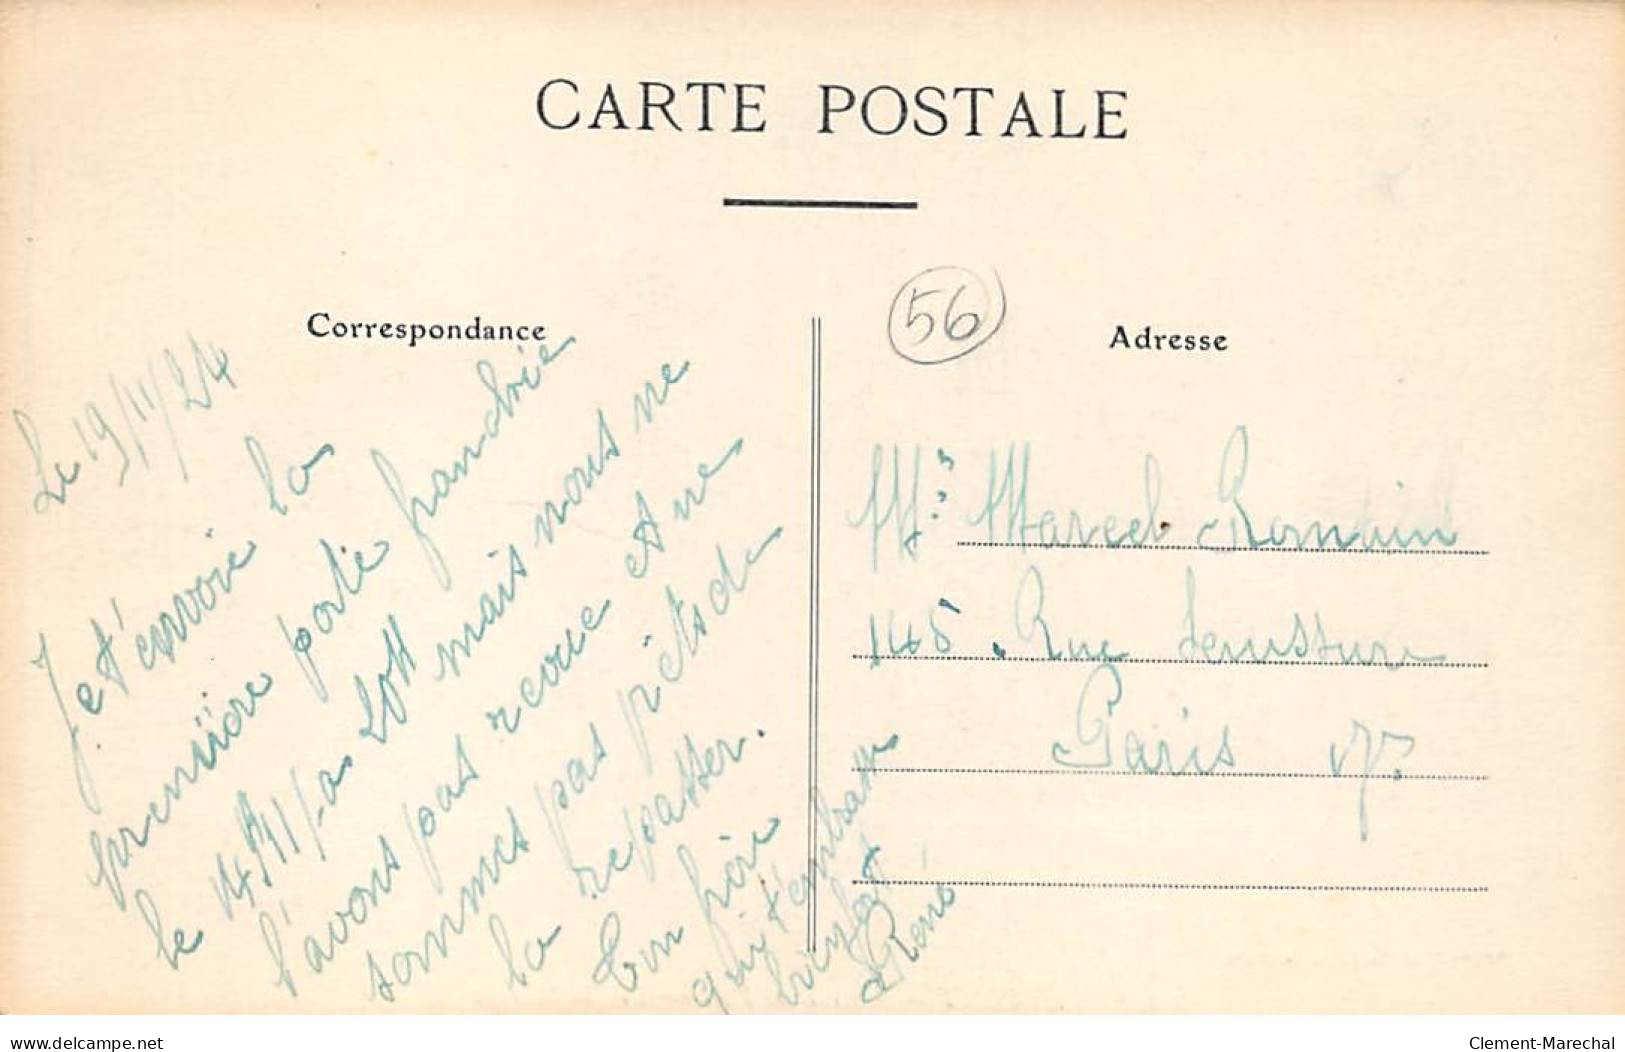 CARTE POSTALE
56
Correspondance
Adresse
Le 19/11/24
Je t'envoie la
première porte
le 14/11/ a 20H mais nous ne
l'avons pas revue et ne
sommes pas prêts de
la repasser.
Ton frère
qui t'embrasse
bien fort
René
Mr Marcel Romain
148 . Rue
Paris
delcampe.net
Clement-Marechal